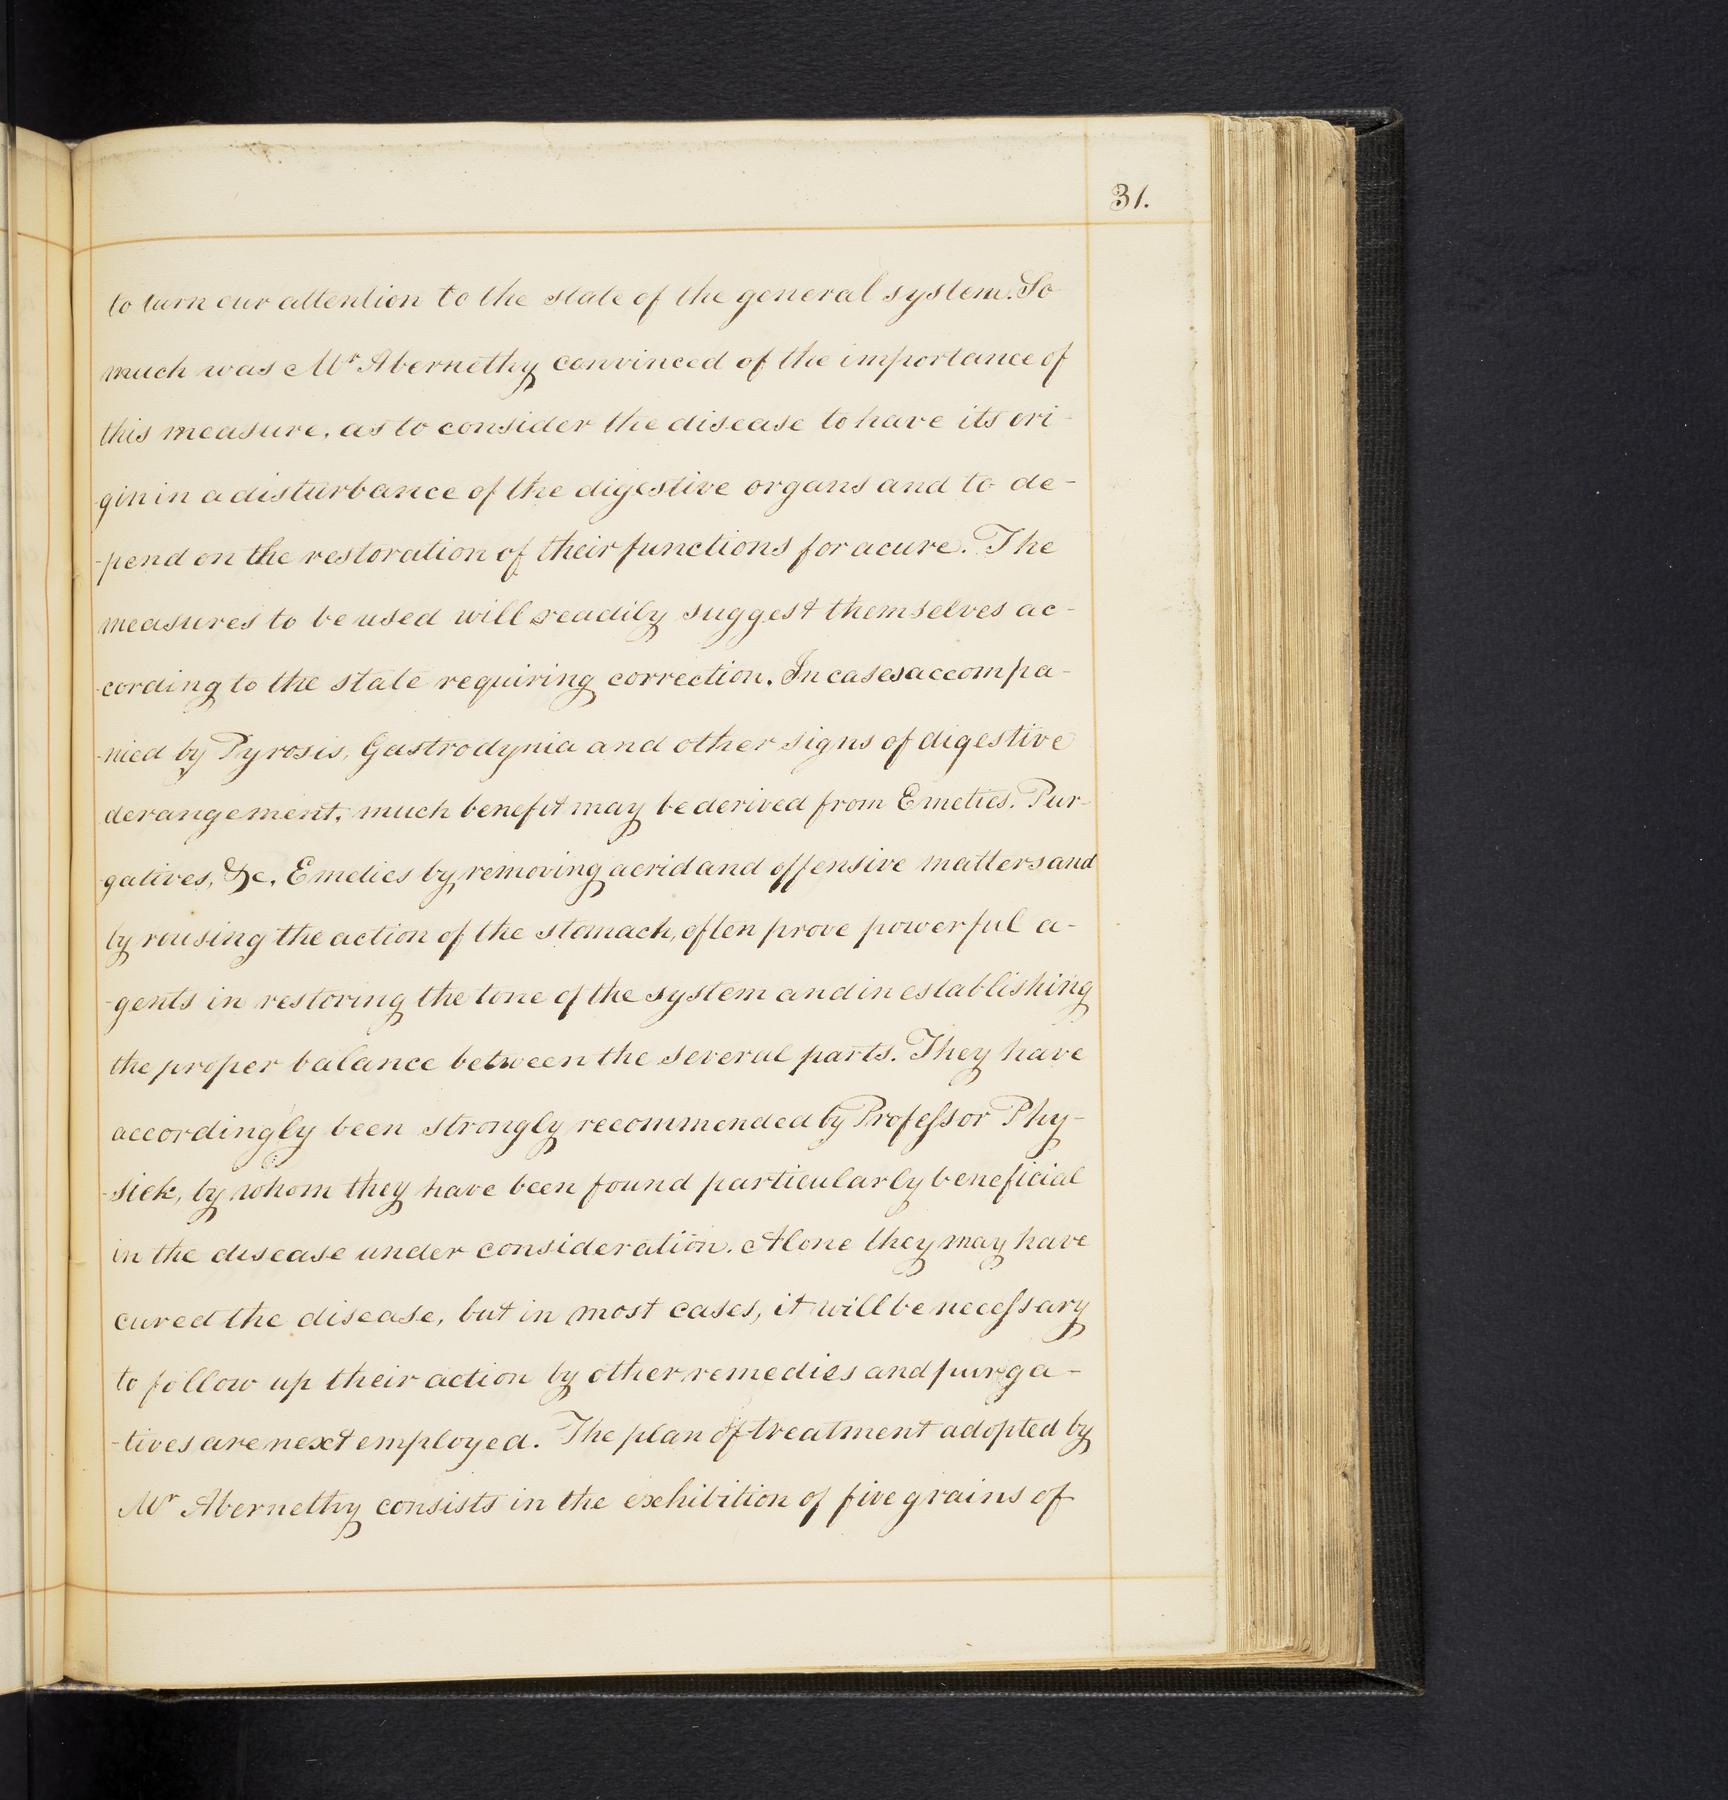 31.
to turn our attention to the state of the general system. So
much was Mr Abernethy convinced of the importance of
this measure, as to consider the disease to have its ori-
gin in a disturbance of the digestive organs and to de-
-pend on the restoration of their functions for a cure. The
measures to be used will readily suggest themselves ac-
-cording to the state requiring correction. In cases accompa-
-nied by Pyrosis, Gastrodynia and other signs of digestive
derangement, much benefit may be derived from Emetics. Pur-
gatives, &c. Emetics by removing acrid and offensive matters and
by rousing the action of the stomach, often prove powerful a-
-gents in restoring the tone of the system and in establishing
the proper balance between the several parts. They have
accordingly been strongly recommended by Professor Phy-
-sick, by whom they have been found particularly beneficial
in the disease under consideration. Alone they may have
cured the disease, but in most cases, it will be necessary
to follow up their action by other remedies and purga-
-tives are next employed. The plan of treatment adopted by
Mr Abernethy consists in the exhibition of five grains of